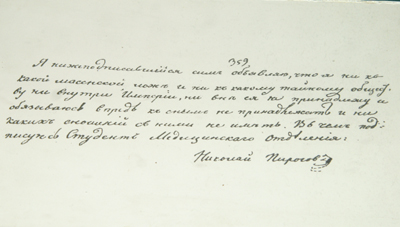 359
Я нижеподписавшейся симъ объявляю, что я ни къ ка
кой масонской ложѣ и ни къ какому тайному общест
ву ни внутри Имперіи, ни внѣ ея не принадлежу и
обязываюсь впредь къ онымъ не принадлежать и ни
какихъ сношеній съ ними не имѣть. Въ чемъ под
писуюсь Студентъ Медицинскаго отдѣленія:
Николай Пироговъ